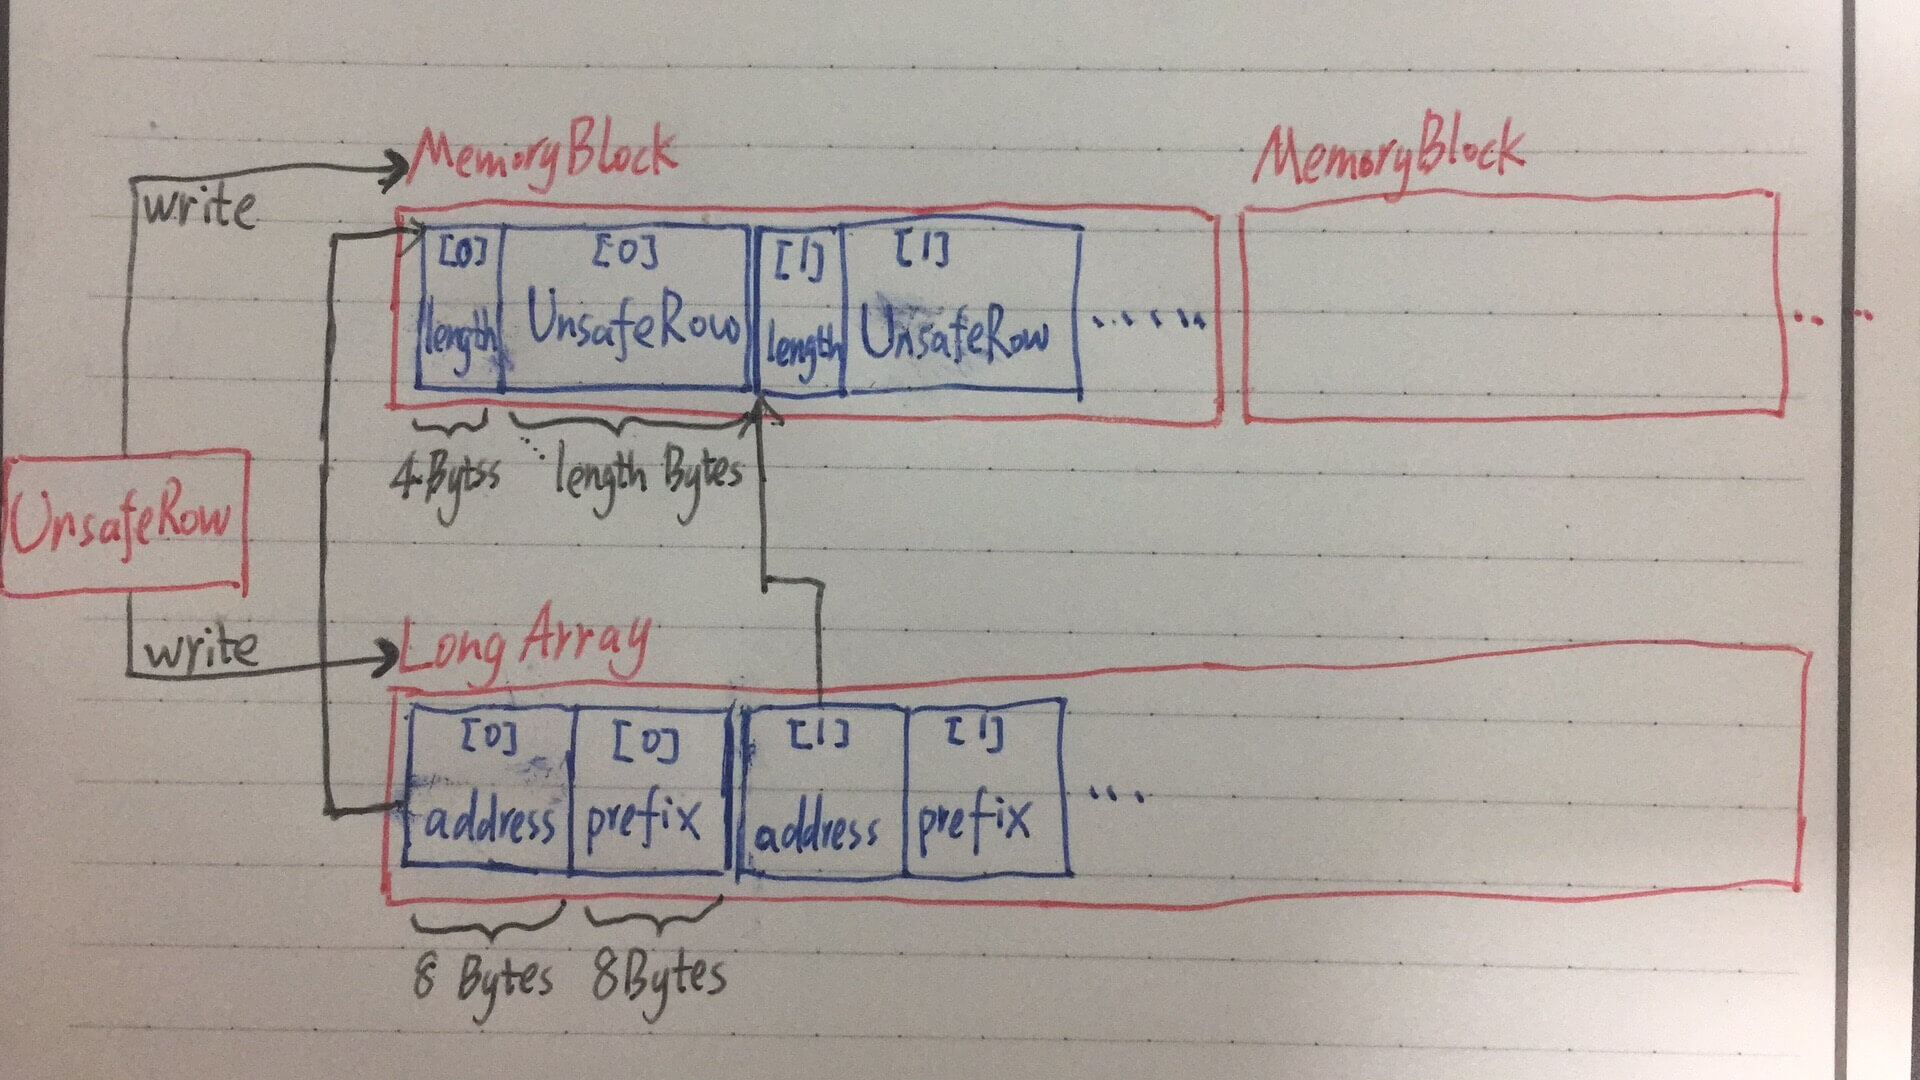 MemoryBlock
MemoryBlock
write
[0] [0] [1] [1]
length UnsafeRow length UnsafeRow ......
...
4 Bytss length Bytes
UnsafeRow
write
Long Array
[0] [0] [1] [1]
address prefix address prefix ...
8 Bytes 8Bytes